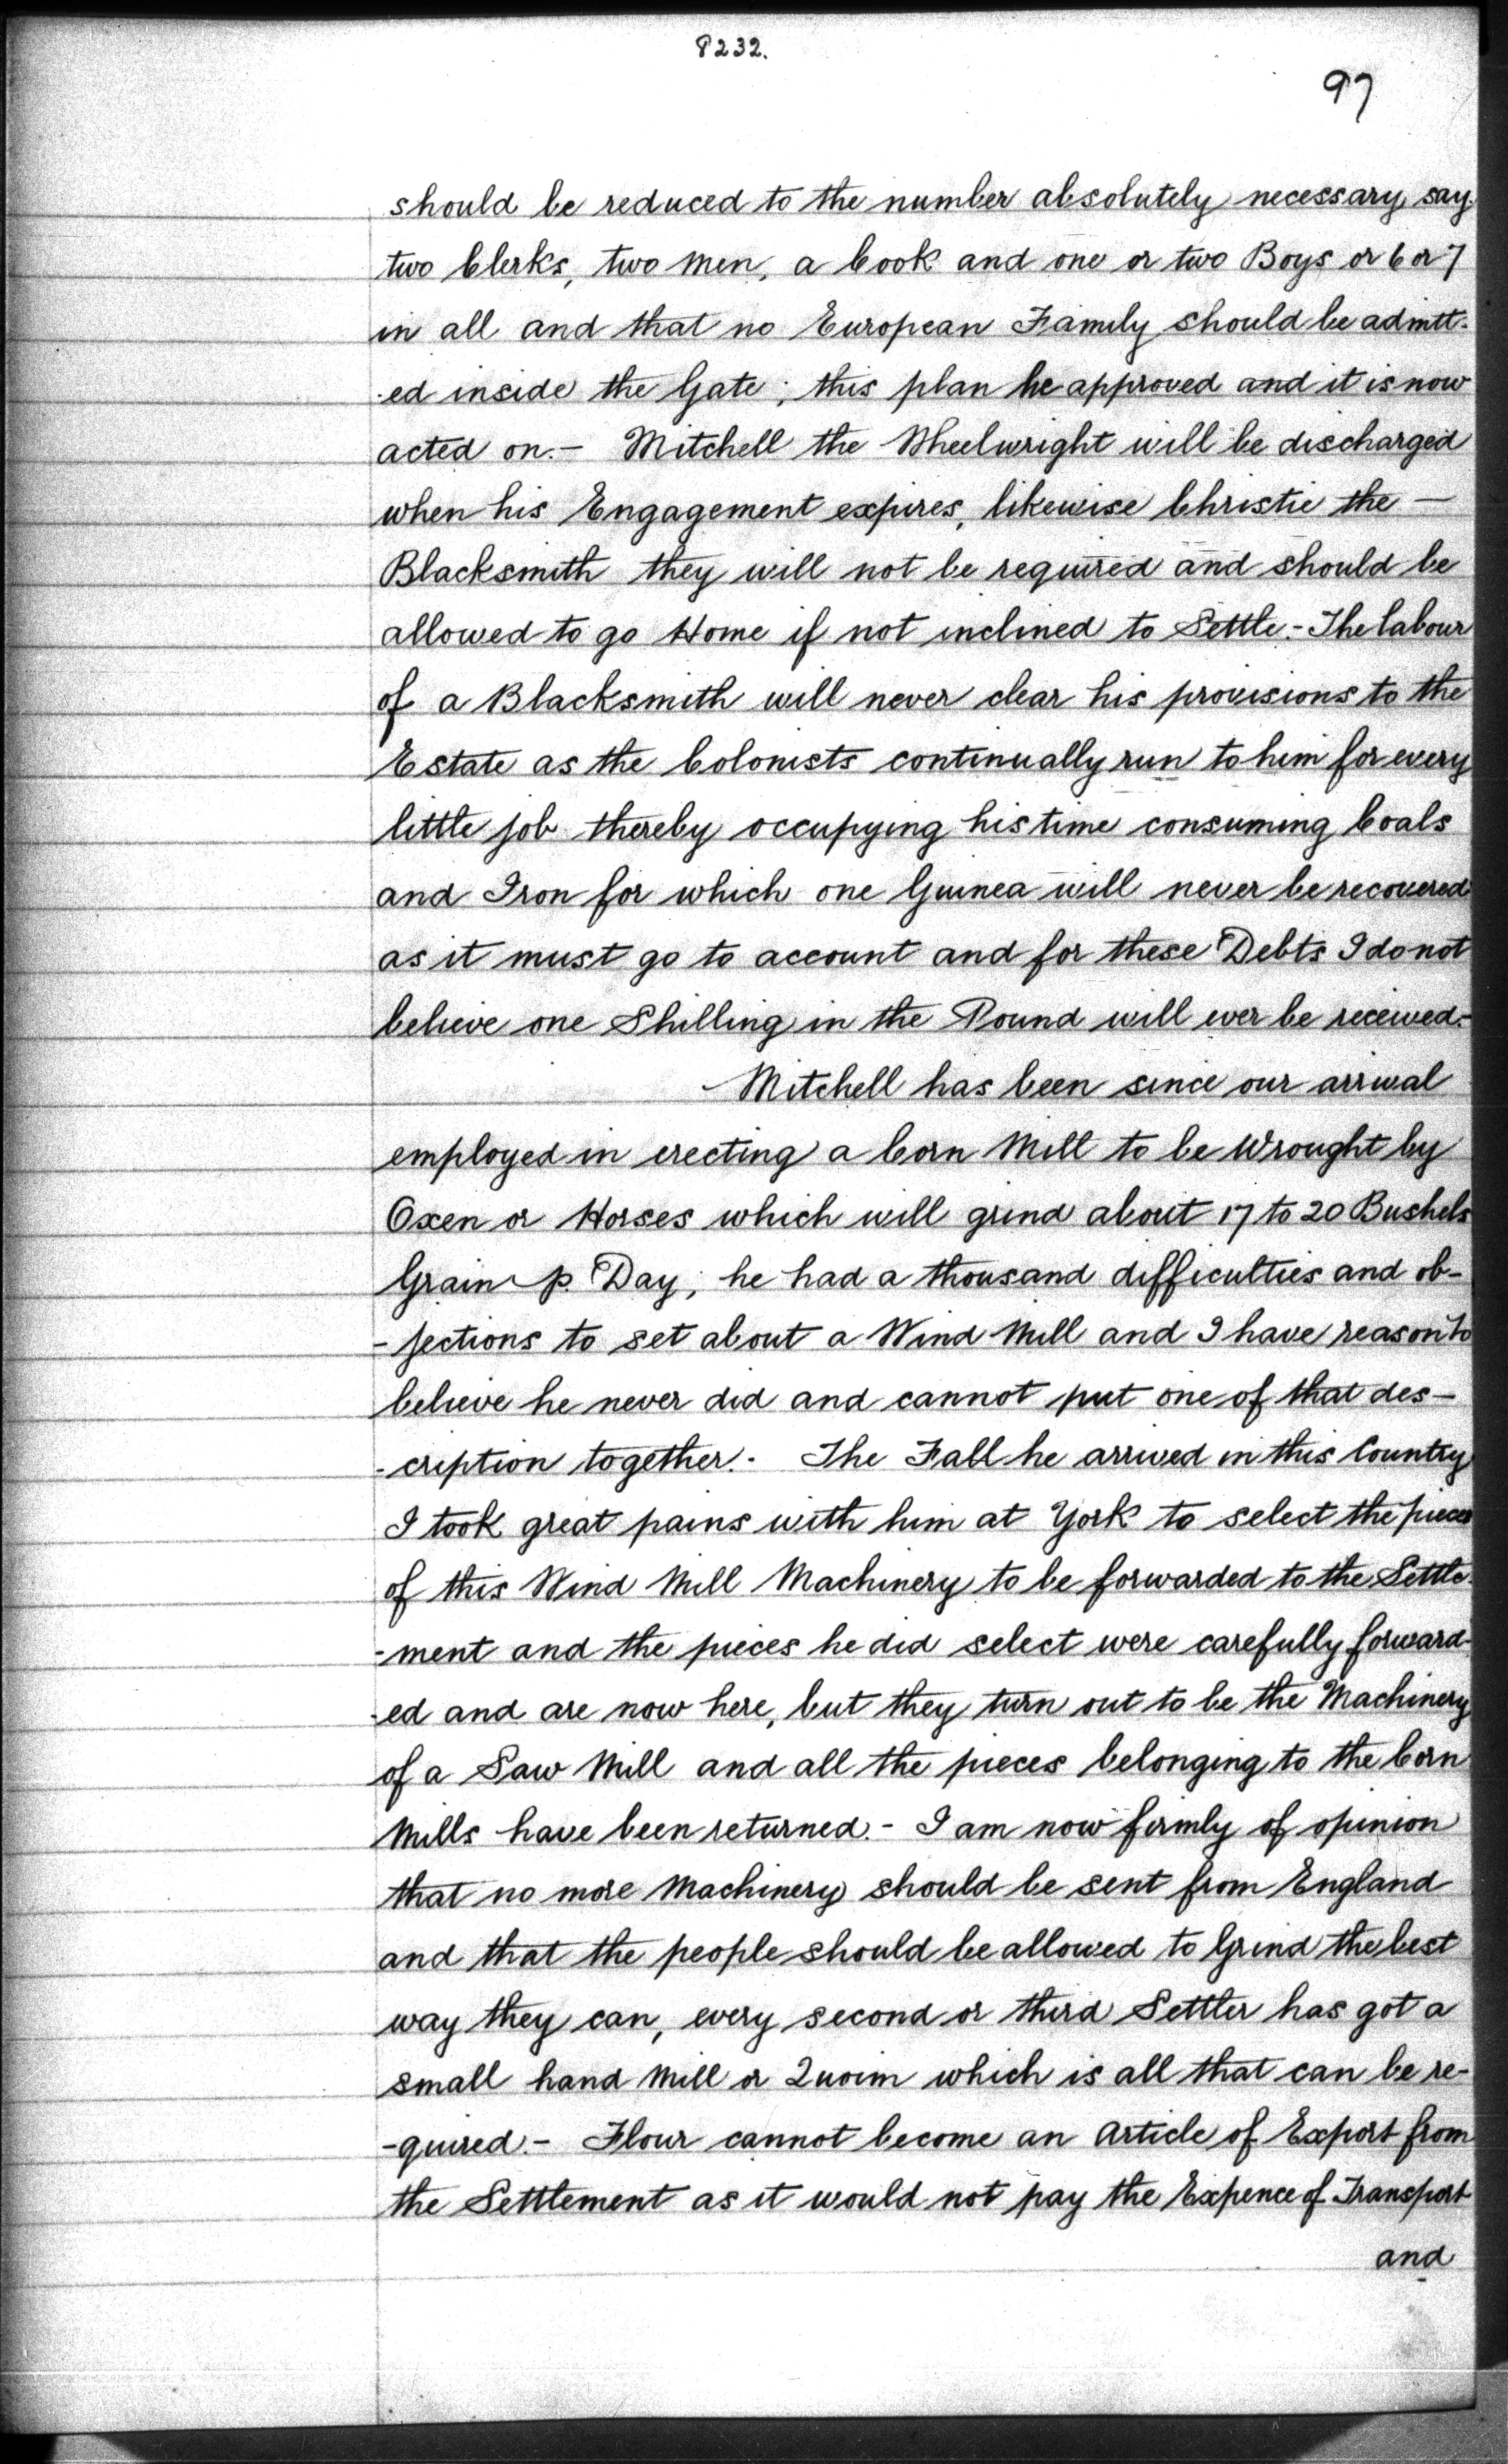 8232.
97
should be reduced to the number absolutely necessary, say
two Clerks, two Men, a Cook and one or two Boys or 6 or 7
in all and that no European Family should be admitt-
-ed inside the Gate; this plan he approved and it is now
acted on.- Mitchell the Wheelwright will be discharged
when his Engagement expires, likewise Christie the -
Blacksmith they will not be required and should be
allowed to go Home if not inclined to Settle.- The labour
of a Blacksmith will never clear his provisions to the
Estate as the Colonists continually run to him for every
little job thereby occupying his time consuming Coals
and Iron for which one Guinea will never be recovered
as it must go to account and for these Debts I do not
believe one Shilling in the Pound will ever be received.-
Mitchell has been since our arrival
employed in erecting a Corn Mill to be Wrought by
Oxen or Horses which will grind about 17 to 20 Bushels
Grain p. Day; he had a thousand difficulties and ob-
-jections to set about a Wind Mill and I have reason to
believe he never did and cannot put one of that des-
-cription together.- The Fall he arrived in this Country
I took great pains with him at York to select the pieces
of this Wind Mill Machinery to be forwarded to the Settle-
-ment and the pieces he did select were carefully forward-
-ed and are now here, but they turn out to be the Machinery
of a Saw Mill and all the pieces belonging to the Corn
Mills have been returned.- I am now firmly of opinion
that no more Machinery should be sent from England
and that the people should be allowed to Grind the best
way they can, every second or third Settler has got a
small hand Mill or Quoirn which is all that can be re-
-quired.- Flour cannot become an Article of Export from
the Settlement as it would not pay the Expence of Transport
and